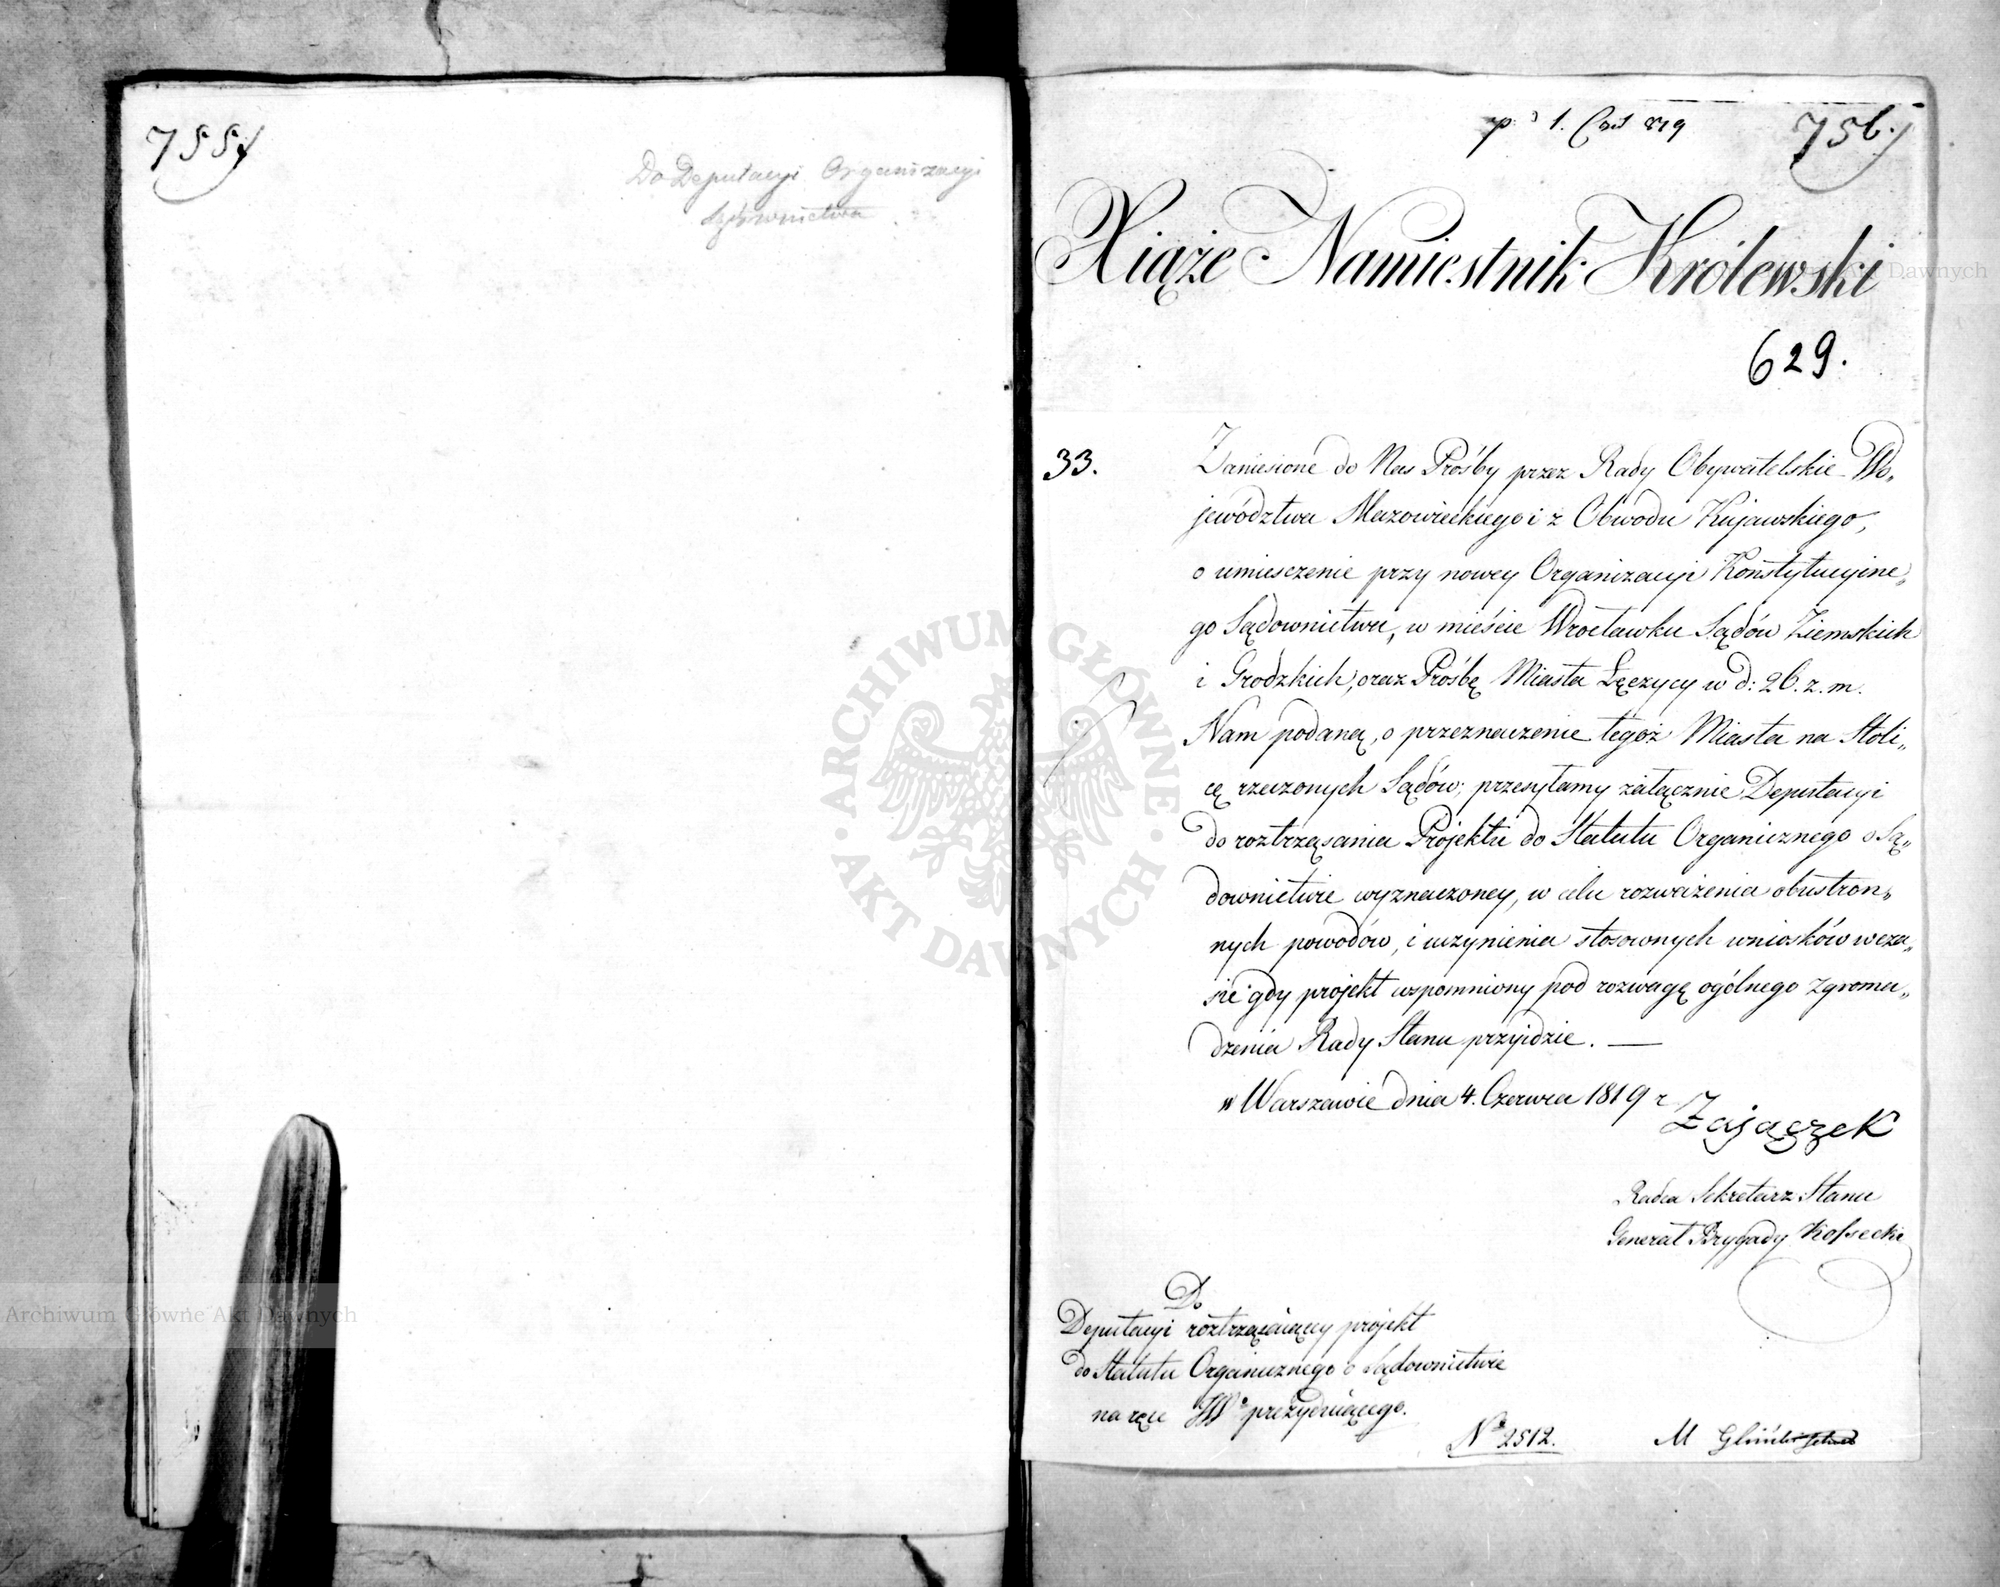 755
Do Deputacyi Organizacyi
Sądownictwa
756.
Xiąże Namiestnik Królewski
629.
33.
Zaniesione do Nas Prośby przez Rady Obywatelskie Wo„
jewództwa Mazowieckiego i z Obwodu Kujawskiego,
o umiesczenie przy nowey Organizacyi Konstytucyine„
go Sądownictwa, w mieście Wrocławku Sądów Ziemskich
i Grodzkich, oraz Prośbę Miasta Łęczycy w d: 26. z. m.
Nam podaną, o przeznaczenie tegoż Miasta na Stoli„
cę rzeczonych Sądów; przesyłamy załącznie Deputacyi
do roztrząsania Projektu do Statutu Organicznego o Są„
downictwie wyznaczoney, w celu rozważenia obustron„
nych powodów, i uczynienia stosownych wniosków w cza„
sie gdy projekt wspomniony pod rozwagę ogólnego Zgroma„
dzenia Rady Stanu przyidzie. —
w Warszawie dnia 4. Czerwca 1819 r
Zajączek
Radca Sekretarz Stanu
Generał Brygady Kossecki
Do
Deputacyi roztrząsaiącey projekt
do Statutu Organicznego o Sądownictwie
na ręce JW° prezyduiącego.
No 2512.
M Gliński
ARCHIWUM GŁÓWNE AKT DAWNYCH
Archiwum Główne Akt Dawnych
Archiwum Główne Akt Dawnych